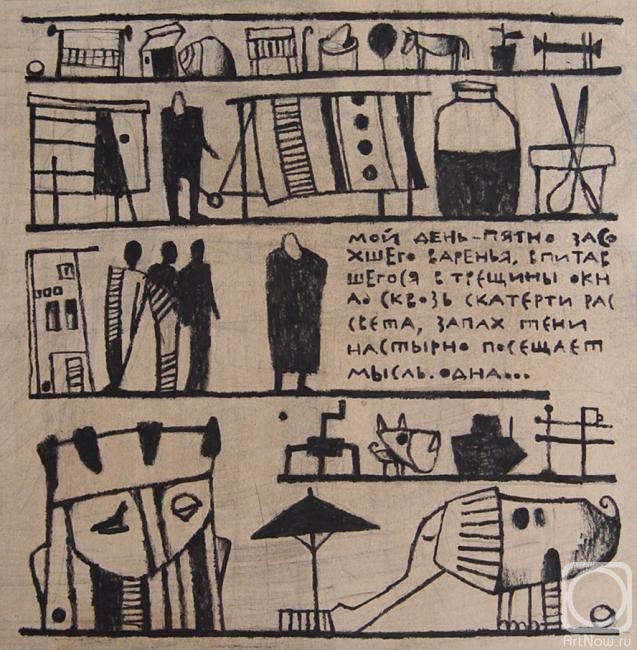 мой день-пятно засо
хшего варенья, впитав
шегося в трещины окн
а о сквозь скатерти рас
света, запах тени
настырно посещает
мысль.одна...
ArtNow.ru